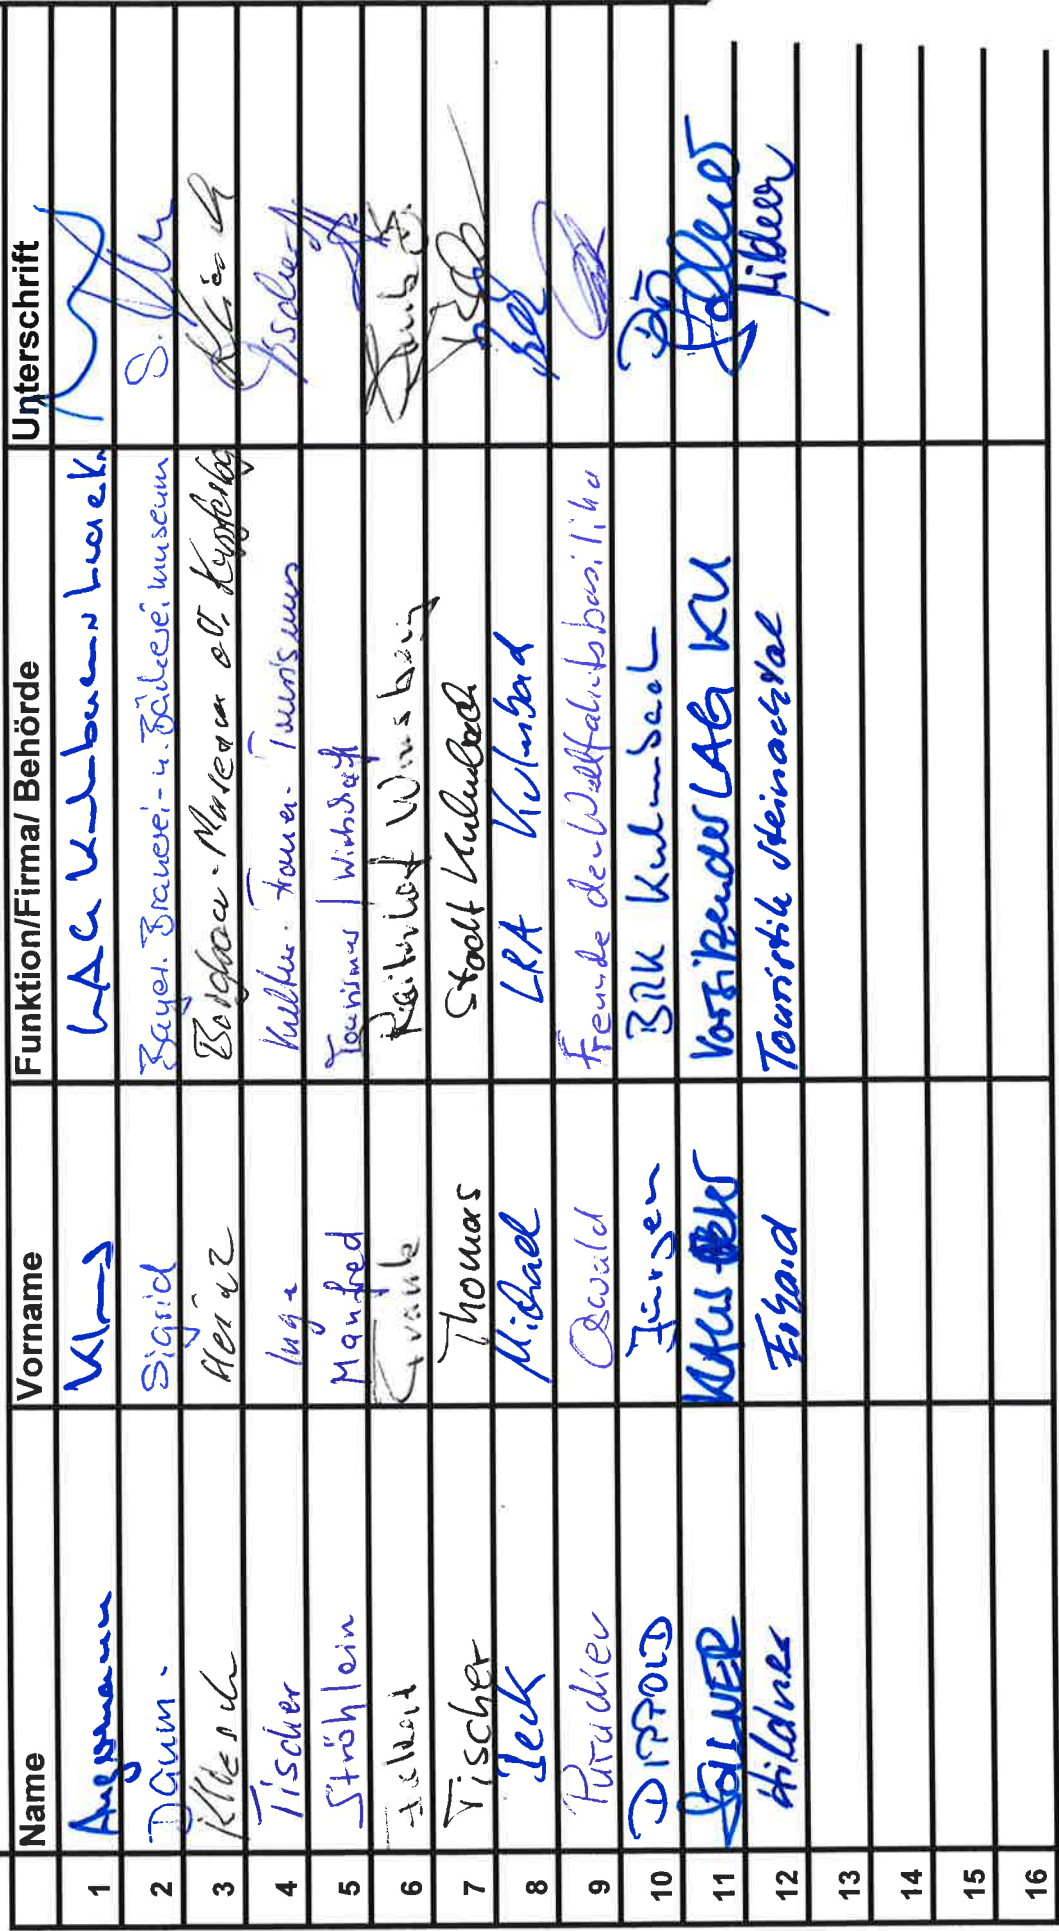 Name Vorname Funktion/Firma/ Behörde Unterschrift
1 Angermann Klaus LAG Kulmbacher Land
2 Daum Sigrid Bayer. Brauerei- u. Bäckereimuseum S.
3 Heinz Museum
4 Tischer Inga Kultur- Tourismus
5 Ströhlein Manfred Tourismus / Wirtschaft
6 Frank Wirsberg
7 Tischer Thomas Stadt Kulmbach
8 Beck Michael LRA Kulmbach
9 Purucker Oswald Freunde der Wallfahrtsbasilika
10 DIPPOLD Jürgen BRK Kulmbach
11 SÖLLNER Klaus Peter Vorsitzender LAG KU Söllner
12 Hildner Erhard Touristik Steinachtal Hildner
13
14
15
16